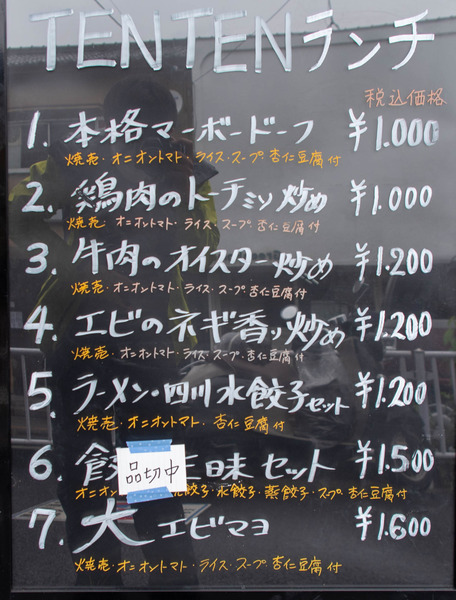 TENTENランチ
税込価格
1. 本格マーボードーフ ¥1.000
焼売・オニオントマト・ライス・スープ 杏仁豆腐付
2. 鶏肉のトーチミソ炒め ¥1.000
焼売・オニオントマト・ライス・スープ 杏仁豆腐付
3. 牛肉のオイスター炒め ¥1.200
焼売・オニオントマト・ライス・スープ 杏仁豆腐付
4. エビのネギ香り炒め ¥1.200
焼売・オニオントマト・ライス・スープ・杏仁豆腐付
5. ラーメン・四川水餃子セット ¥1.200
焼売・オニオントマト・杏仁豆腐付
6. 餃 三昧セット ¥1.500
品切中
オニオン 餃子・水餃子・蒸餃子・スープ 杏仁豆腐付
7. 大エビマヨ ¥1.600
焼売・オニオントマト・ライス・スープ 杏仁豆腐付